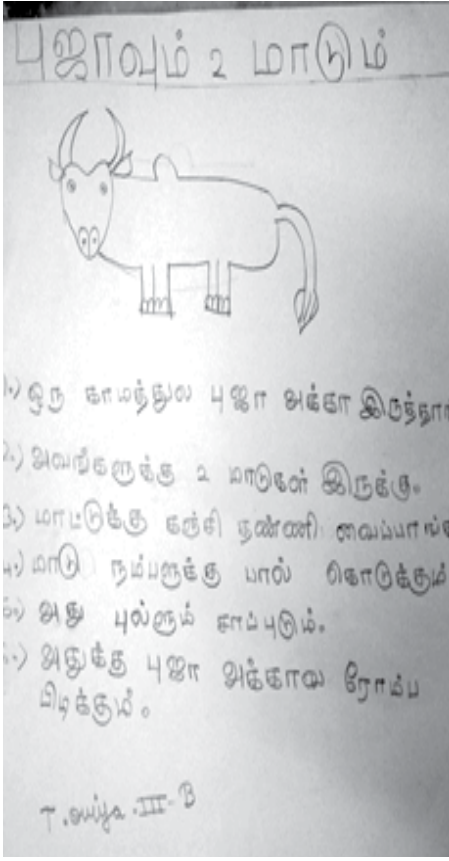 புஜாவும் 2 மாடும்
1.) ஒரு காமத்துல புஜா அக்கா
2.) அவங்களுக்கு 2 மாடுகள் இருக்கு.
3.) மாட்டுக்கு கஞ்சி தண்ணி
4.) மாடு நம்பளுக்கு பால் கொடுக்கும்
5.) அது புல்லும் சாப்புடும்.
6.) அதுக்கு புஜா அக்காவ ரோம்ப
பிடிக்கும்.
T. oviya - III - B